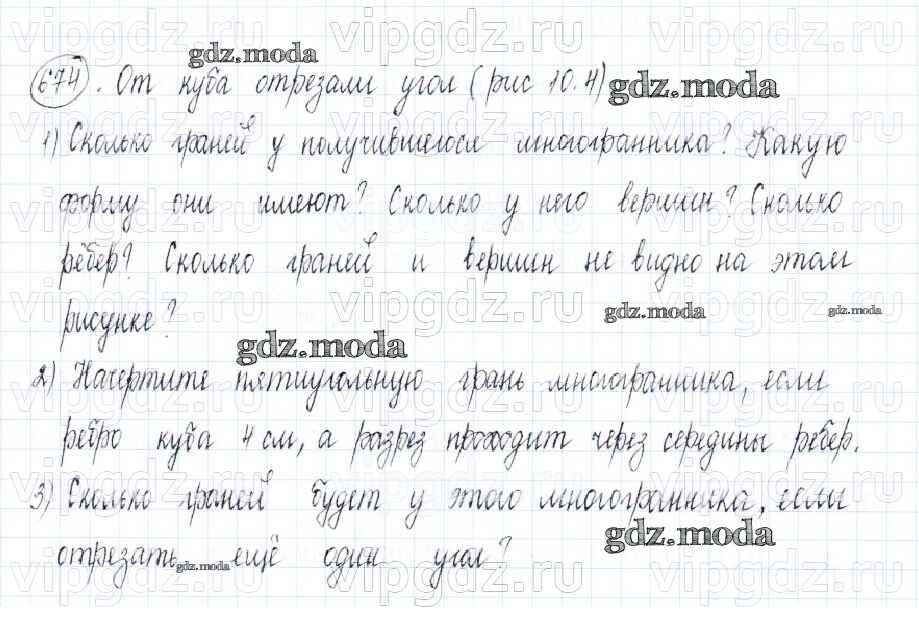 674. От куба отрезали угол (рис 10.4)
1) Сколько граней у получившегося многогранника? Какую
форму они имеют? Сколько у него вершин? Сколько
рёбер? Сколько граней и вершин не видно на этом
рисунке?
2) Начертите пятиугольную грань многогранника, если
ребро куба 4 см, а разрез проходит через середины рёбер.
3) Сколько граней будет у этого многогранника, если
отрезать ещё один угол?